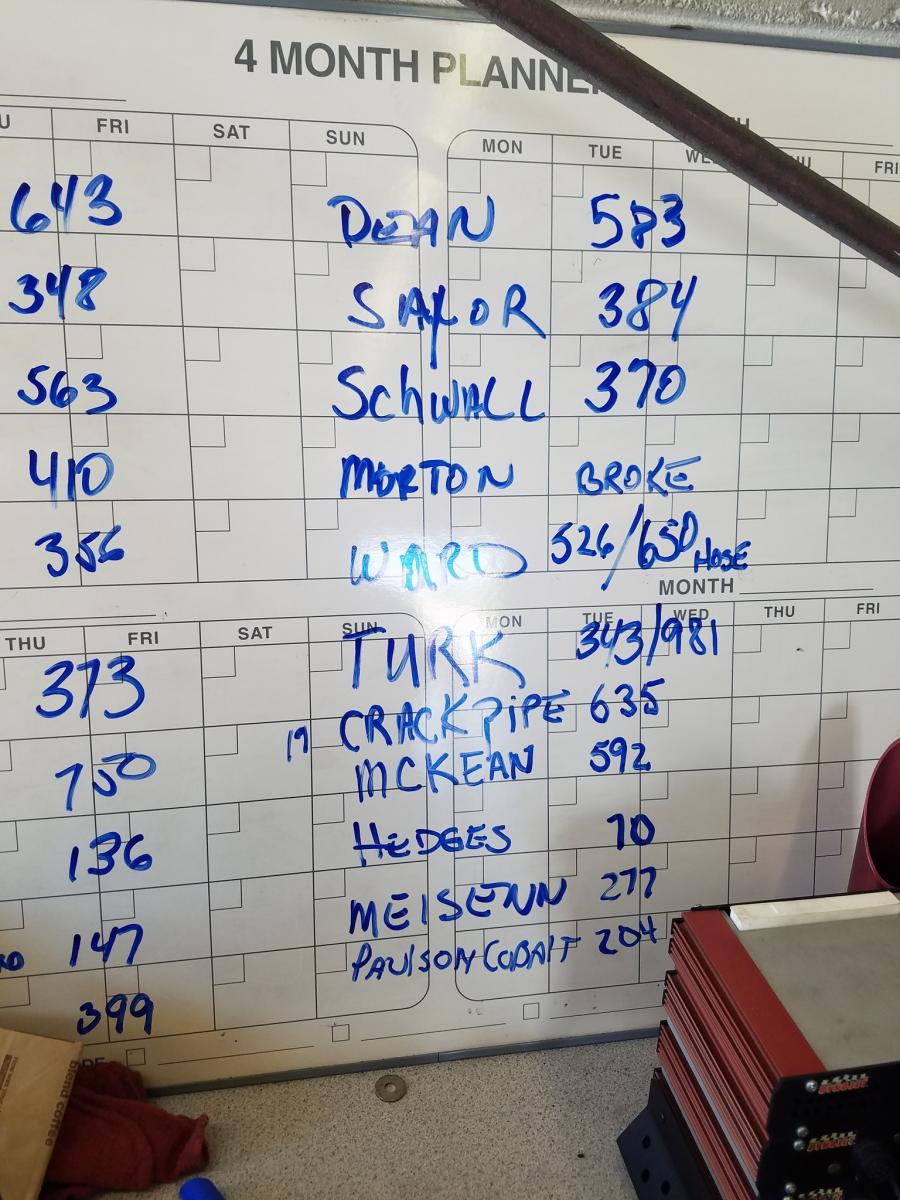 4 MONTH PLANNE
FRI SAT SUN MON TUE WE FRI
643 DEAN 583
348 SAYLOR 384
563 SCHWALL 370
410 MORTON BROKE
356 WARD 526/650 HOSE
MONTH
THU FRI SAT SUN MON TUE WED THU FRI
373 TURK 343/981
CRACKPIPE 635
750 19 MCKEAN 592
136 HEDGES 70
147 MEISENN 277
PAULSON COBALT 204
399
blend coffee
DYNOJET
DYNOJET